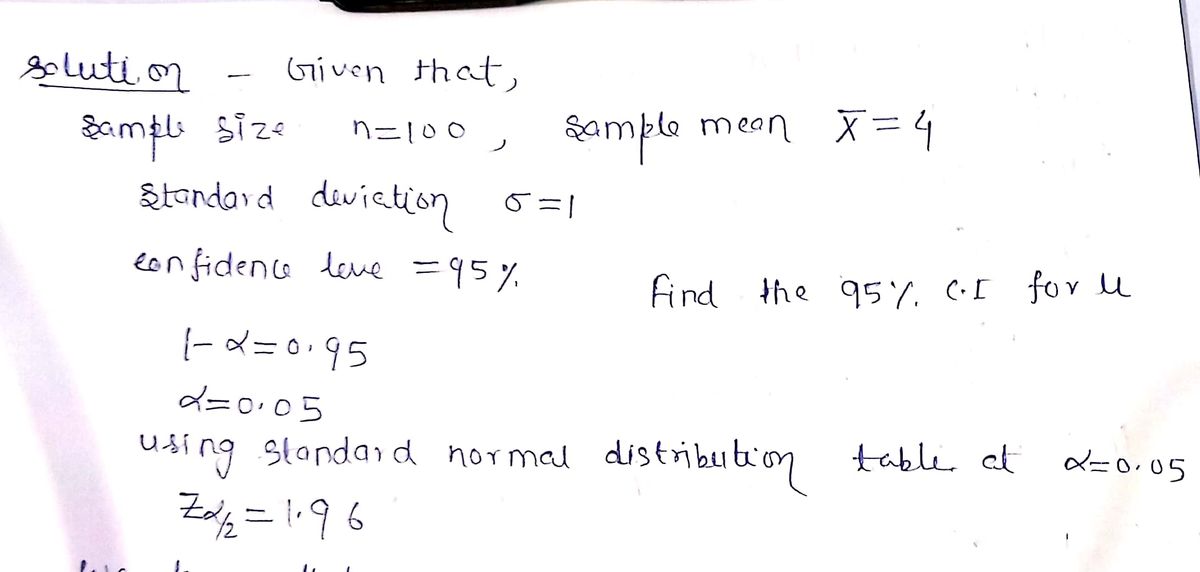 solution - Given that,
sample size n=100, sample mean x̄=4
standard deviation σ=1
confidence leve =95%
find the 95% C.I for μ
1-α=0.95
α=0.05
using standard normal distribution table at α=0.05
Zα/2=1.96